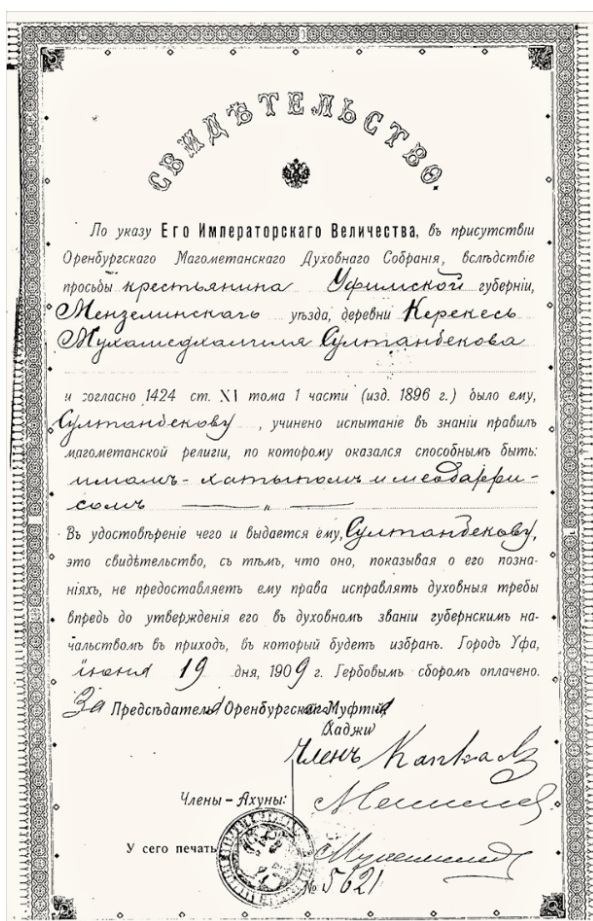 СВИДѢТЕЛЬСТВО.
По указу Его Императорскаго Величества, въ присутствіи
Оренбургскаго Магометанскаго Духовнаго Собранія, вслѣдствіе
просьбы крестьянина Уфимской губерніи,
Мензелинскаго уѣзда, деревни Керекесь
Султанбекова
и согласно 1424 ст. XI тома 1 части (изд. 1896 г.) было ему,
Султанбекову, учинено испытаніе въ знаніи правилъ
магометанской религіи, по которому оказался способнымъ быть:
имамъ-хатыпомъ и мударри-
сомъ — „ —
Въ удостовѣреніе чего и выдается ему, Султанбекову,
это свидѣтельство, съ тѣмъ, что оно, показывая о его позна-
ніяхъ, не предоставляетъ ему права исправлять духовныя требы
впредь до утвержденія его въ духовномъ званіи губернскимъ на-
чальствомъ въ приходъ, въ который будетъ избранъ. Городъ Уфа,
іюня 19 дня, 1909 г. Гербовымъ сборомъ оплачено.
За Предсѣдателя Оренбургскаго Муфтія
Хаджи
Членъ Капкаев
Члены-Ахуны:
У сего печать
№ 5621